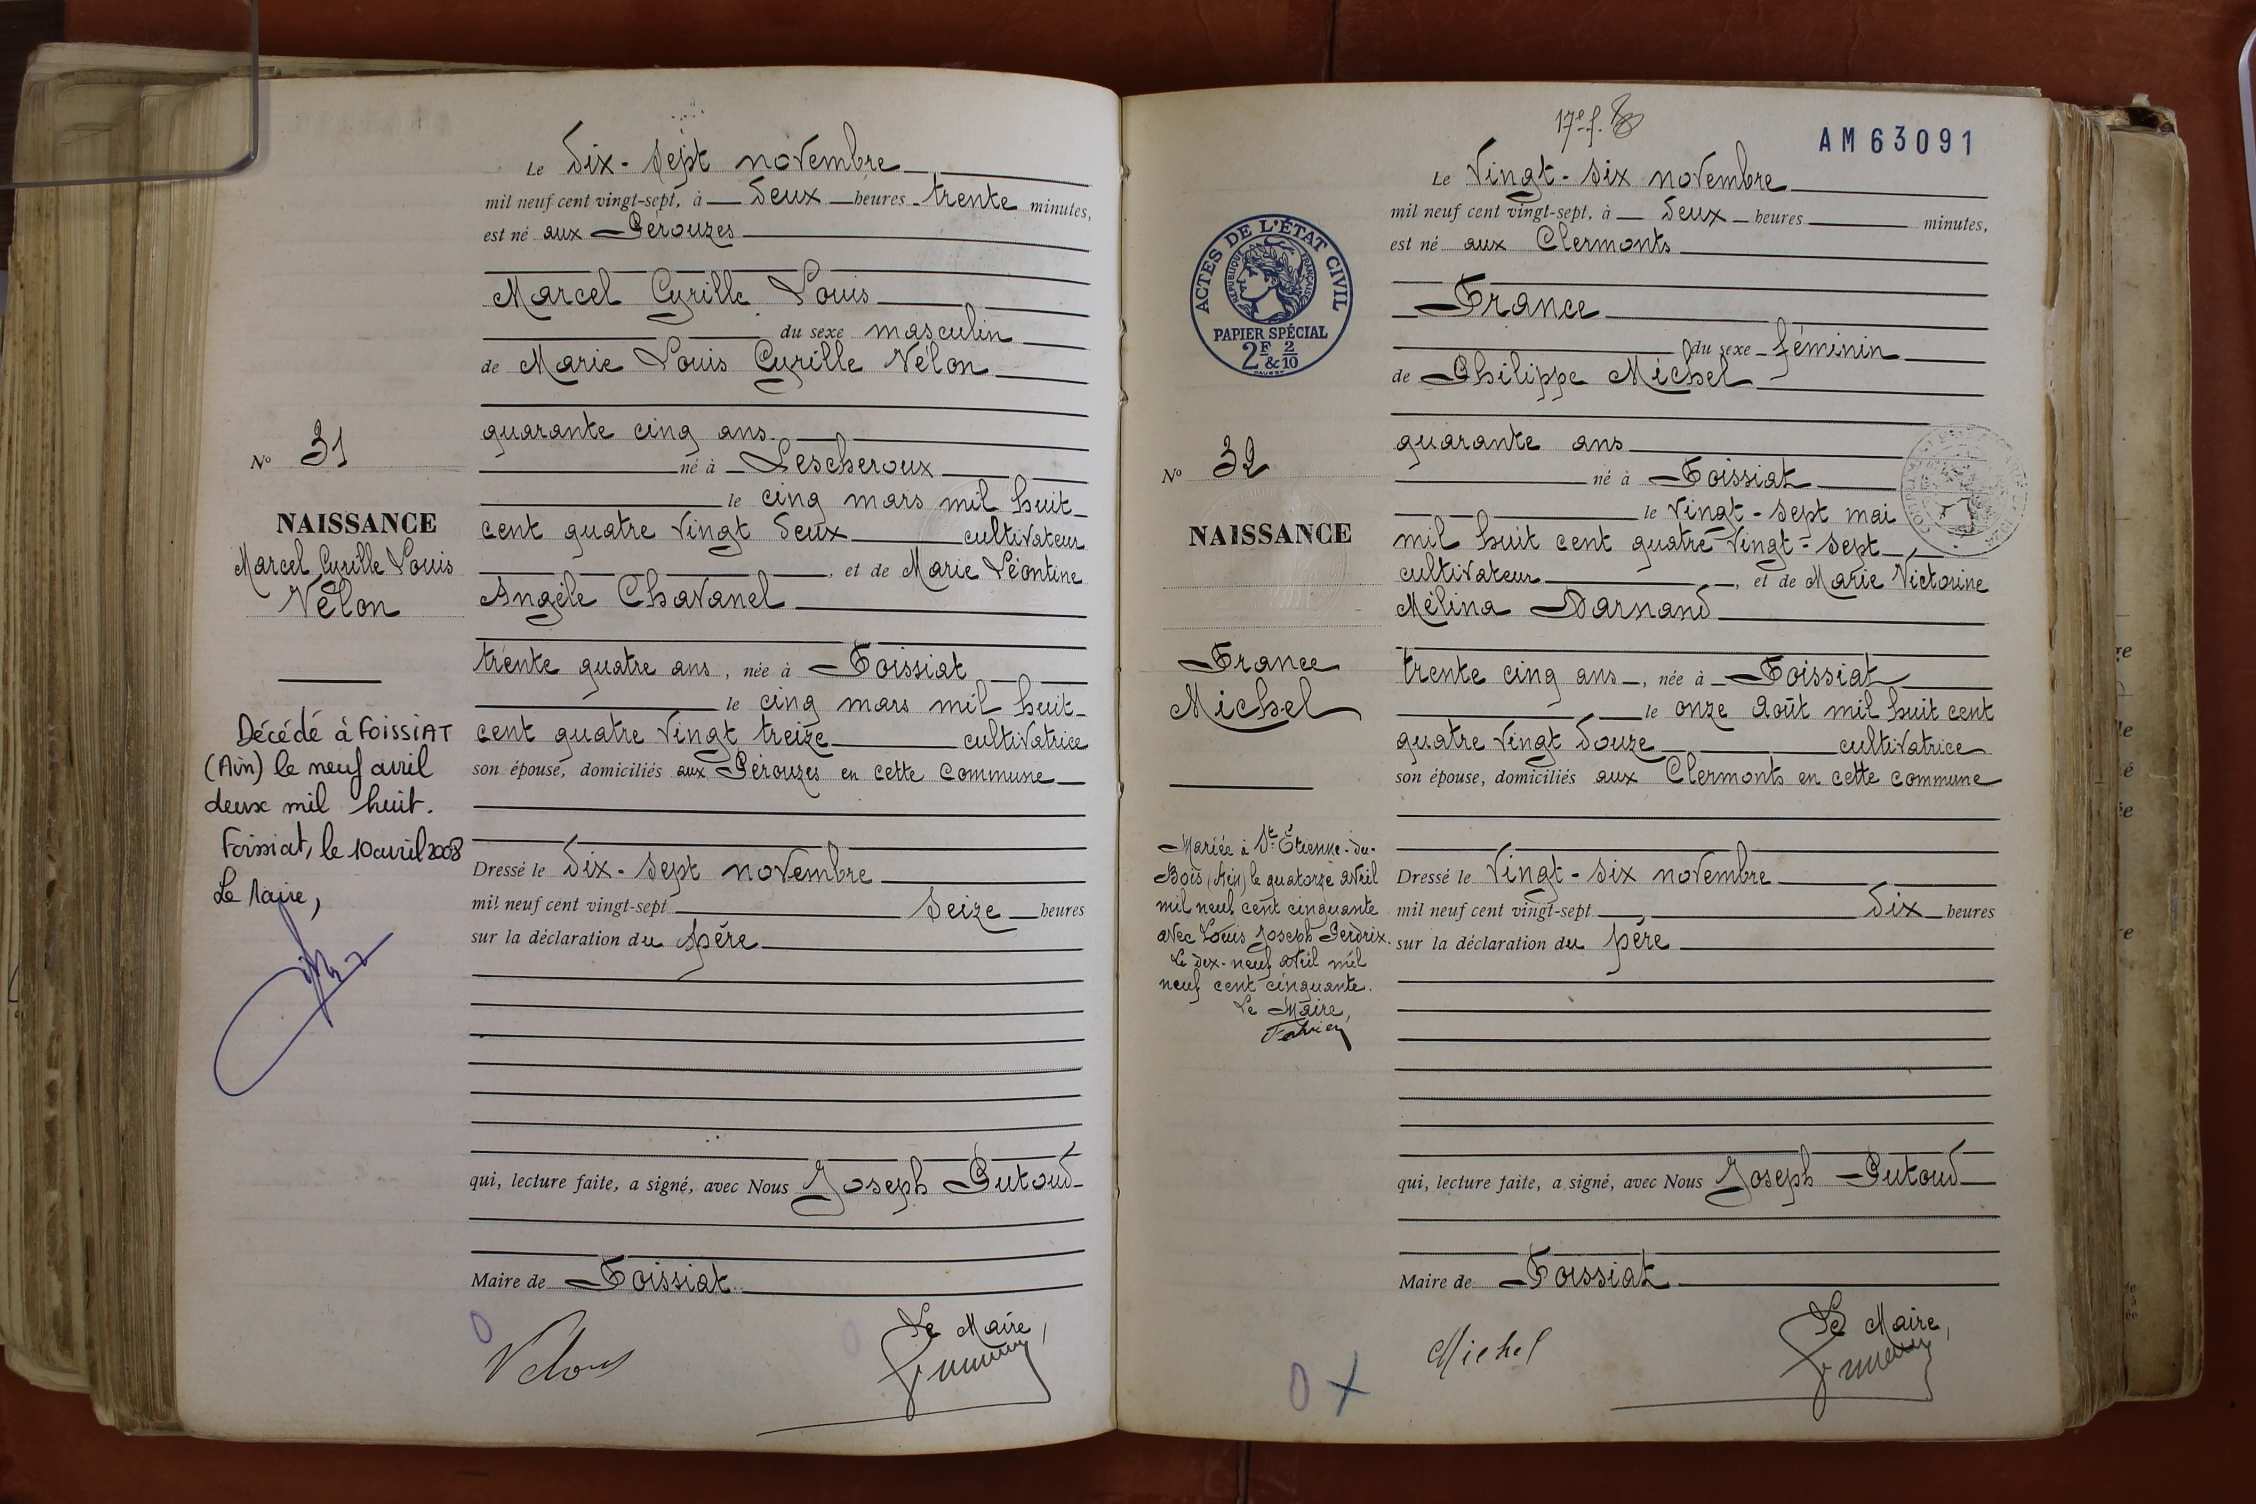 Le Dix-sept novembre
mil neuf cent vingt-sept, à deux heures trente minutes,
est né aux Pérouzes
Marcel Cyrille Louis
du sexe masculin
de Marie Louis Cyrille Vélon
quarante cinq ans
né à Lescheroux
le cinq mars mil huit
cent quatre vingt deux cultivateur
, et de Marie Léontine
Angèle Chavanel
trente quatre ans, née à Foissiat
le cinq mars mil huit
cent quatre vingt treize cultivatrice
son épouse, domiciliés aux Pérouzes en cette commune
Dressé le dix-sept novembre
mil neuf cent vingt-sept seize heures
sur la déclaration du père
qui, lecture faite, a signé, avec Nous Joseph Putoud
Maire de Foissiat
Le Maire,
Velon
N° 31
NAISSANCE
Marcel Cyrille Louis
Vélon
Décédé à FOISSIAT
(Ain) le neuf avril
deux mil huit.
Foissiat, le 10 avril 2008
Le Maire,
17e f.
AM63091
Le Vingt-six novembre
mil neuf cent vingt-sept, à deux heures minutes,
est né aux Clermonts
France
du sexe féminin
de Philippe Michel
quarante ans
né à Foissiat
le vingt-sept mai
mil huit cent quatre-vingt-sept
cultivateur, et de Marie Victorine
Mélina Darnand
trente cinq ans, née à Foissiat
le onze Août mil huit cent
quatre vingt douze cultivatrice
son épouse, domiciliés aux Clermonts en cette commune
Dressé le vingt-six novembre
mil neuf cent vingt-sept dix heures
sur la déclaration du père
qui, lecture faite, a signé, avec Nous Joseph Putoud
Maire de Foissiat
Le Maire,
Michel
ACTES DE L'ÉTAT CIVIL
RÉPUBLIQUE FRANÇAISE
PAPIER SPÉCIAL
2F & 2/10
N° 32
NAISSANCE
France
Michel
Mariée à St Étienne-du-
Bois (Ain) le quatorze avril
mil neuf cent cinquante
avec Louis Joseph Perdrix.
Le dix-neuf avril mil
neuf cent cinquante.
Le Maire,